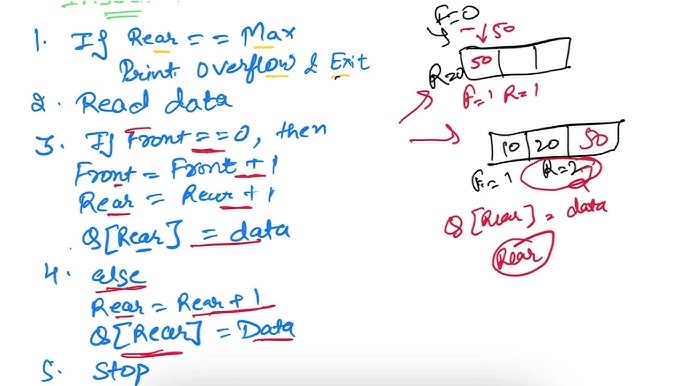 1. If Rear == Max
Print Overflow & Exit
2. Read data
3. If Front == 0, then
Front = Front + 1
Rear = Rear + 1
Q[Rear] = data
4. else
Rear = Rear + 1
Q[Rear] = Data
5. Stop
F=0
50
R=0 50
F=1 R=1
10 20 50
F=1 R=2
Q[Rear] = data
Rear